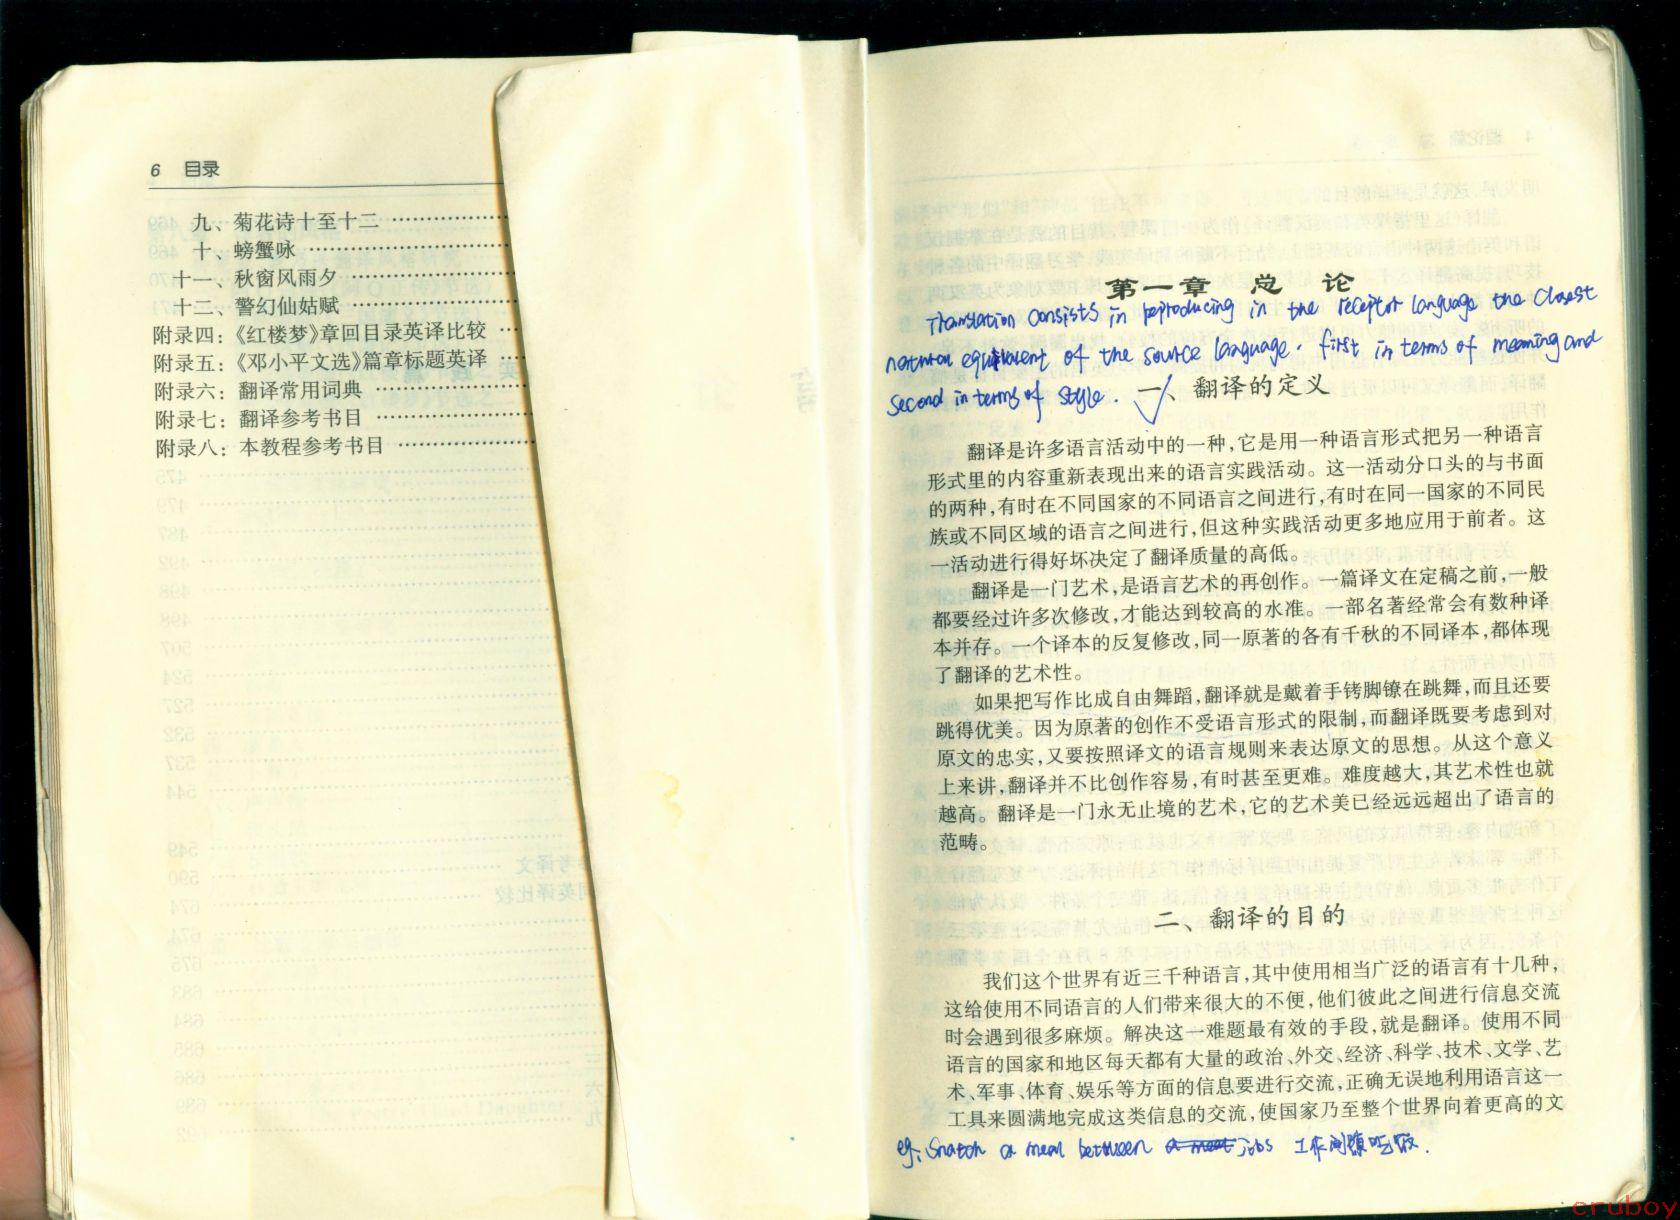 6 目录
九、菊花诗十至十二
十、螃蟹咏
十一、秋窗风雨夕
十二、警幻仙姑赋
附录四：《红楼梦》章回目录英译比较
附录五：《邓小平文选》篇章标题英译
附录六：翻译常用词典
附录七：翻译参考书目
附录八：本教程参考书目
第一章 总 论
Translation consists in reproducing in the receptor language the closest
natural equivalent of the source language. first in terms of meaning and
second in terms of style.
一、翻译的定义
翻译是许多语言活动中的一种，它是用一种语言形式把另一种语言
形式里的内容重新表现出来的语言实践活动。这一活动分口头的与书面
的两种，有时在不同国家的不同语言之间进行，有时在同一国家的不同民
族或不同区域的语言之间进行，但这种实践活动更多地应用于前者。这
一活动进行得好坏决定了翻译质量的高低。
翻译是一门艺术，是语言艺术的再创作。一篇译文在定稿之前，一般
都要经过许多次修改，才能达到较高的水准。一部名著经常会有数种译
本并存。一个译本的反复修改，同一原著的各有千秋的不同译本，都体现
了翻译的艺术性。
如果把写作比成自由舞蹈，翻译就是戴着手铐脚镣在跳舞，而且还要
跳得优美。因为原著的创作不受语言形式的限制，而翻译既要考虑到对
原文的忠实，又要按照译文的语言规则来表达原文的思想。从这个意义
上来讲，翻译并不比创作容易，有时甚至更难。难度越大，其艺术性也就
越高。翻译是一门永无止境的艺术，它的艺术美已经远远超出了语言的
范畴。
二、翻译的目的
我们这个世界有近三千种语言，其中使用相当广泛的语言有十几种，
这给使用不同语言的人们带来很大的不便，他们彼此之间进行信息交流
时会遇到很多麻烦。解决这一难题最有效的手段，就是翻译。使用不同
语言的国家和地区每天都有大量的政治、外交、经济、科学、技术、文学、艺
术、军事、体育、娱乐等方面的信息要进行交流，正确无误地利用语言这一
工具来圆满地完成这类信息的交流，使国家乃至整个世界向着更高的文
eg: Snatch a meal between jobs 工作间隙吃饭.
cruboy